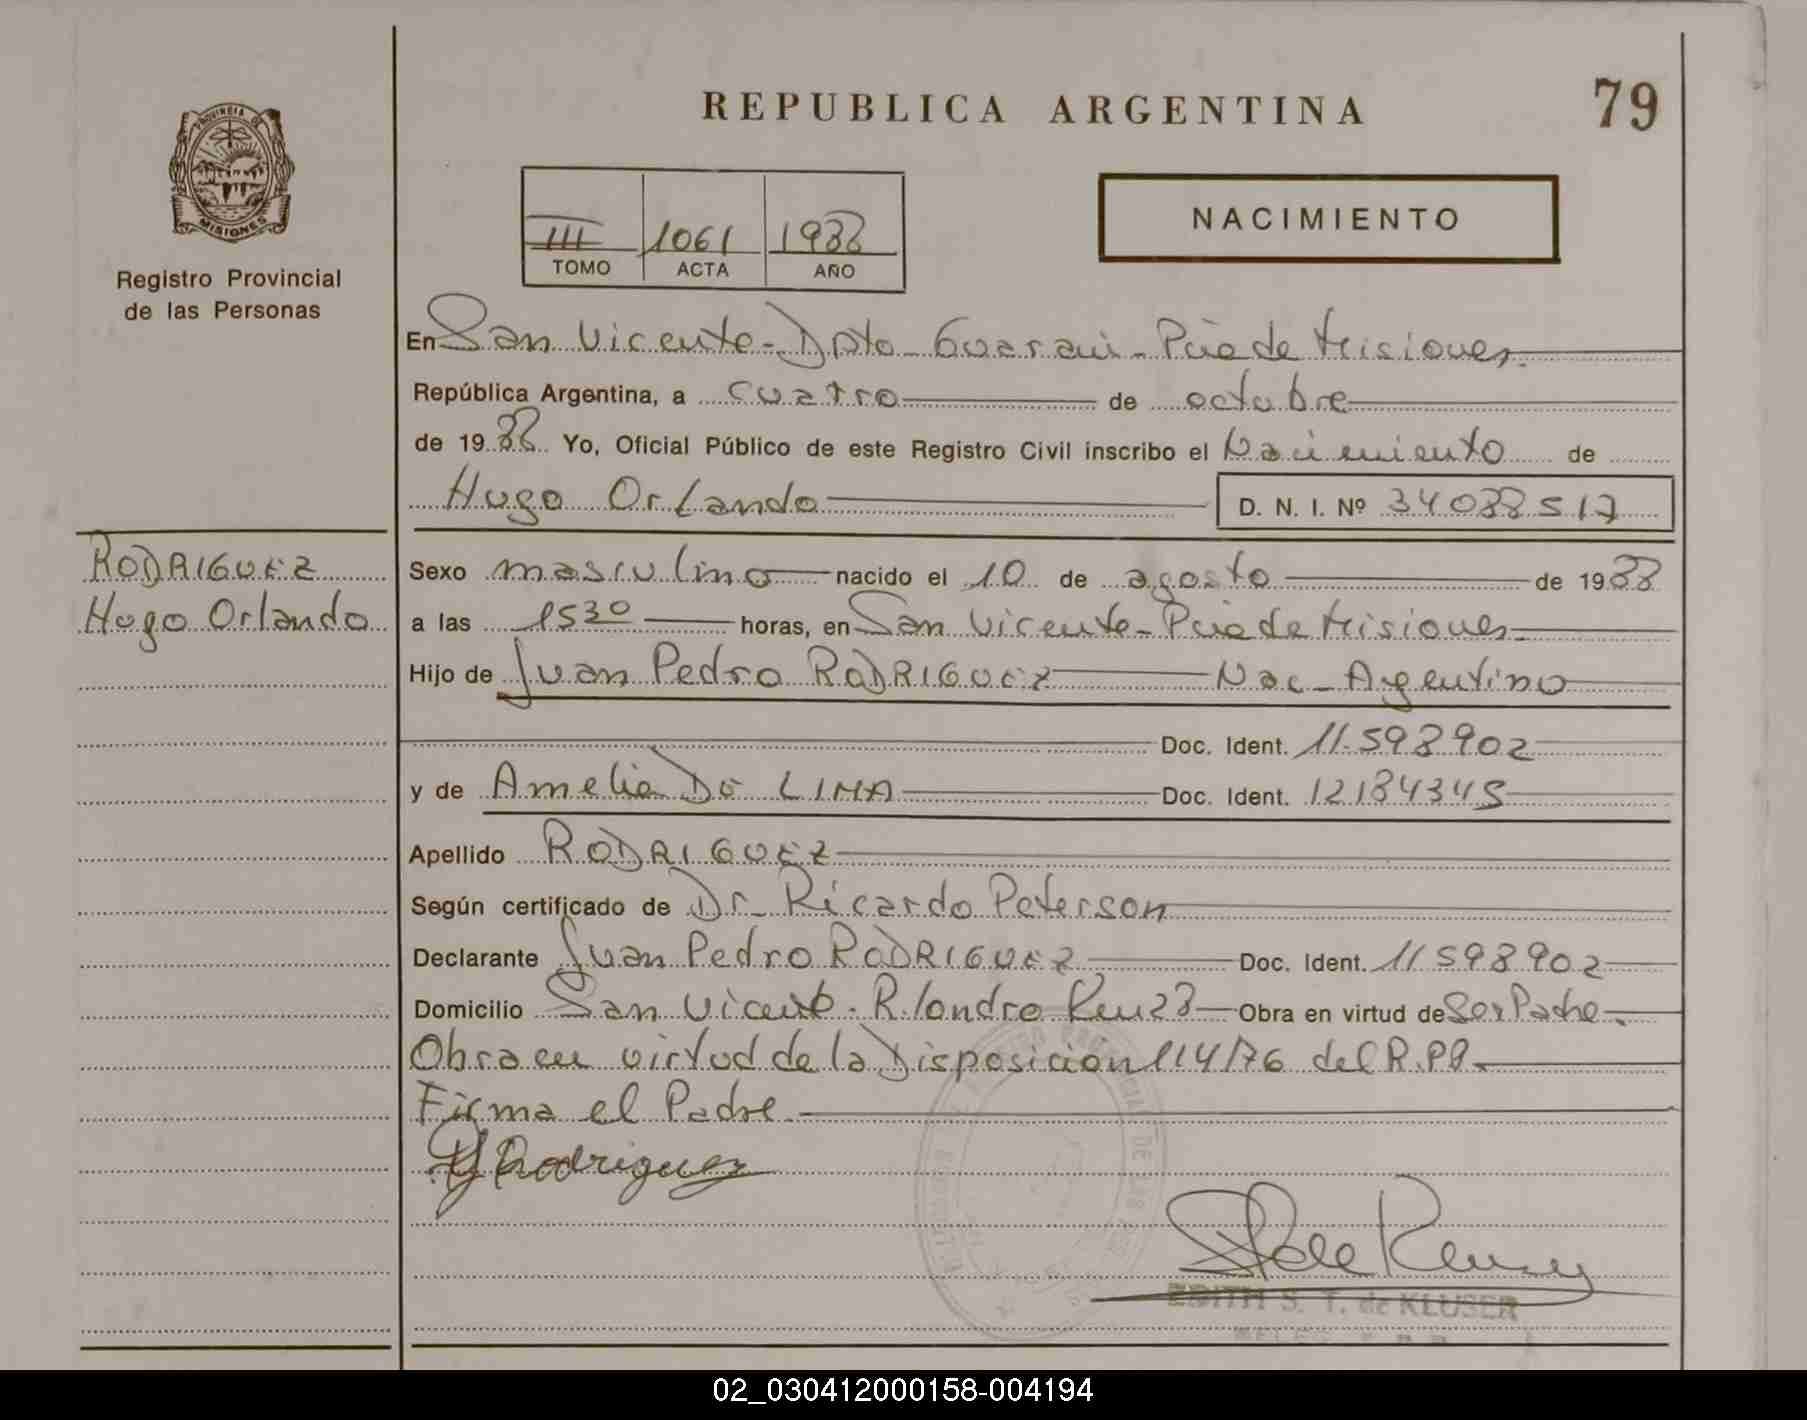 REPUBLICA ARGENTINA
79
PROVINCIA DE
MISIONES
Registro Provincial
de las Personas
III 1061 1988
TOMO ACTA AÑO
NACIMIENTO
En San Vicente - Dpto - Guarani - Pcia de Misiones
República Argentina, a cuatro de octubre
de 1988 Yo, Oficial Público de este Registro Civil inscribo el Nacimiento de
Hugo Orlando D. N. I. Nº 34088517
RODRIGUEZ
Hugo Orlando
Sexo masculino nacido el 10 de agosto de 1988
a las 1530 horas, en San Vicente - Pcia de Misiones
Hijo de Juan Pedro RODRIGUEZ Nac - Argentino
Doc. Ident. 11.598902
y de Amelia DE LIMA Doc. Ident. 12184345
Apellido RODRIGUEZ
Según certificado de Dr. Ricardo Peterson
Declarante Juan Pedro RODRIGUEZ Doc. Ident. 11598902
Domicilio San Vicente - Obra en virtud de Ser Padre
Obra en virtud de la Disposicion 114/76 del R.PP.
Firma el Padre
Rodriguez
EDITH S. T. de KLUSER
02_030412000158-004194